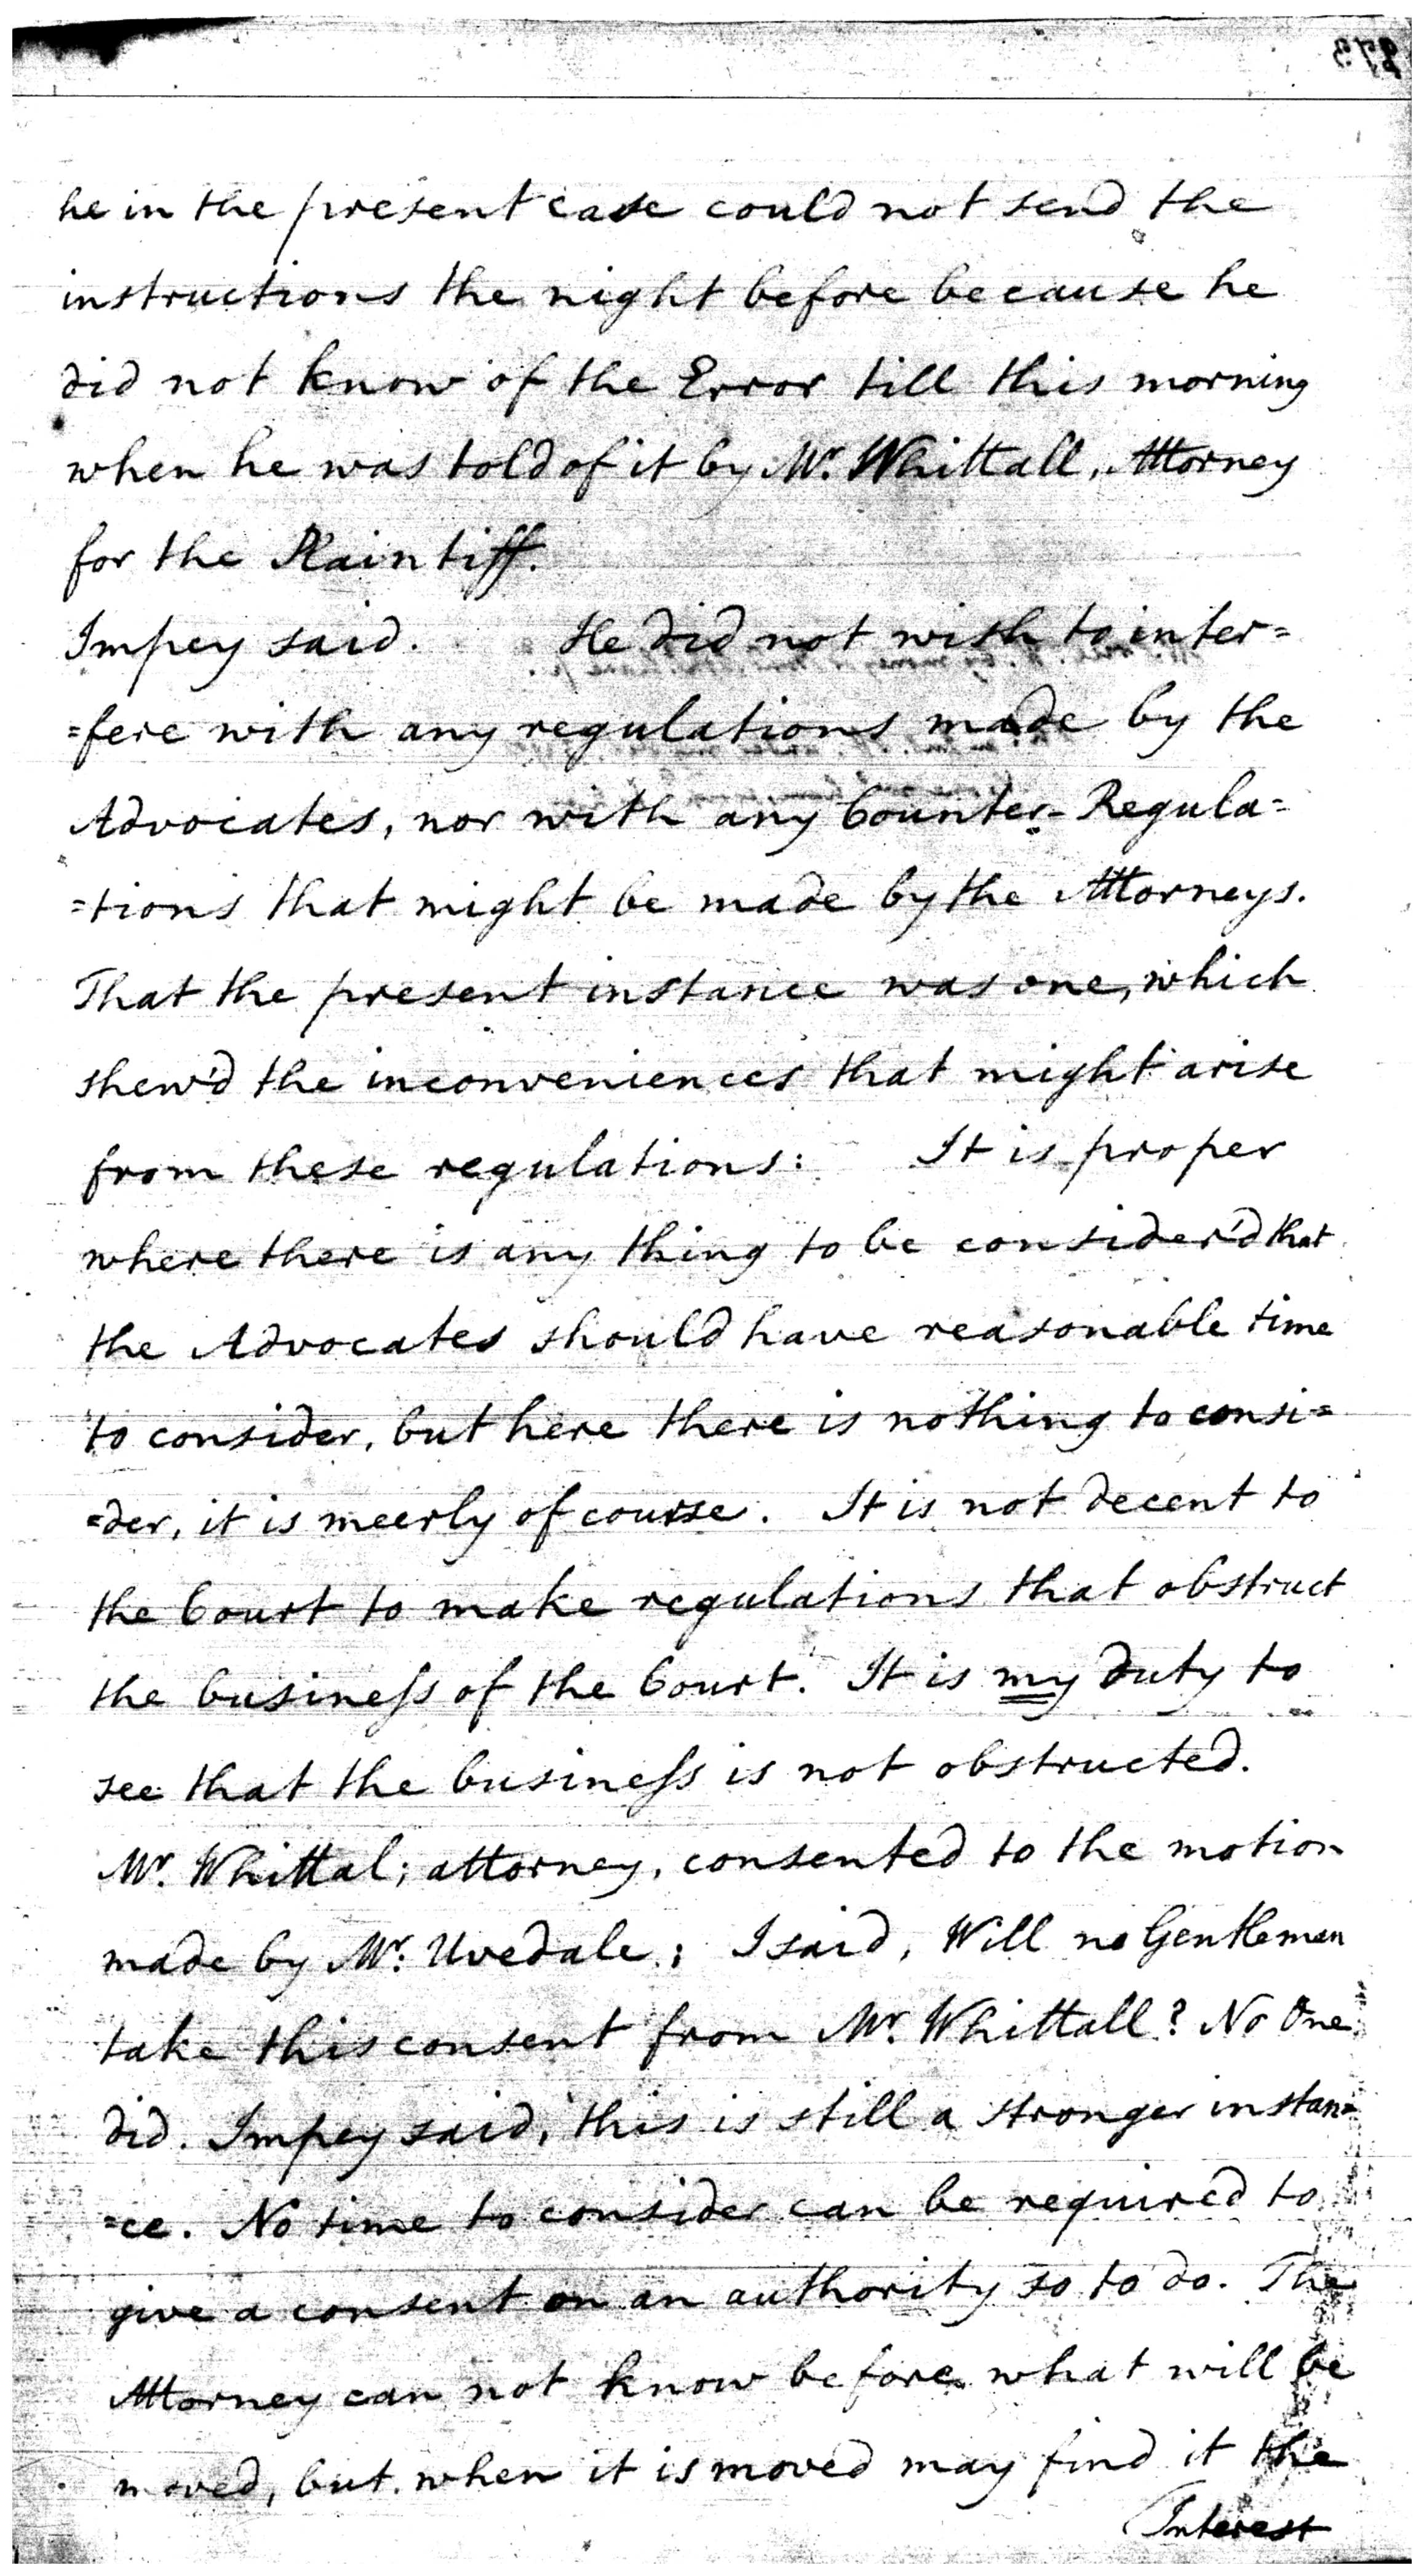 he in the present case could not send the
instructions the night before because he
did not know of the Error till this morning
when he was told of it by Mr. Whittall, Attorney
for the Plaintiff.
Impey said. He did not wish to inter=
=fere with any regulations made by the
Advocates, nor with any Counter-Regula=
=tions that might be made by the Attorneys.
That the present instance was one, which
shew'd the inconveniences that might arise
from these regulations: It is proper
where there is any thing to be consider'd that
the Advocates should have reasonable time
to consider, but here there is nothing to consi=
=der, it is meerly of course. It is not decent to
the Court to make regulations that obstruct
the busineſs of the Court. It is my duty to
see that the busineſs is not obstructed.
Mr. Whittal; attorney, consented to the motion
made by Mr. Uvedale; I said, Will no Gentleman
take this consent from Mr. Whittall? No One
did. Impey said, this is still a stronger instan=
=ce. No time to consider can be required to
give a consent on an authority so to do. The
Attorney can not know before what will be
moved, but when it is moved may find it the
Interest